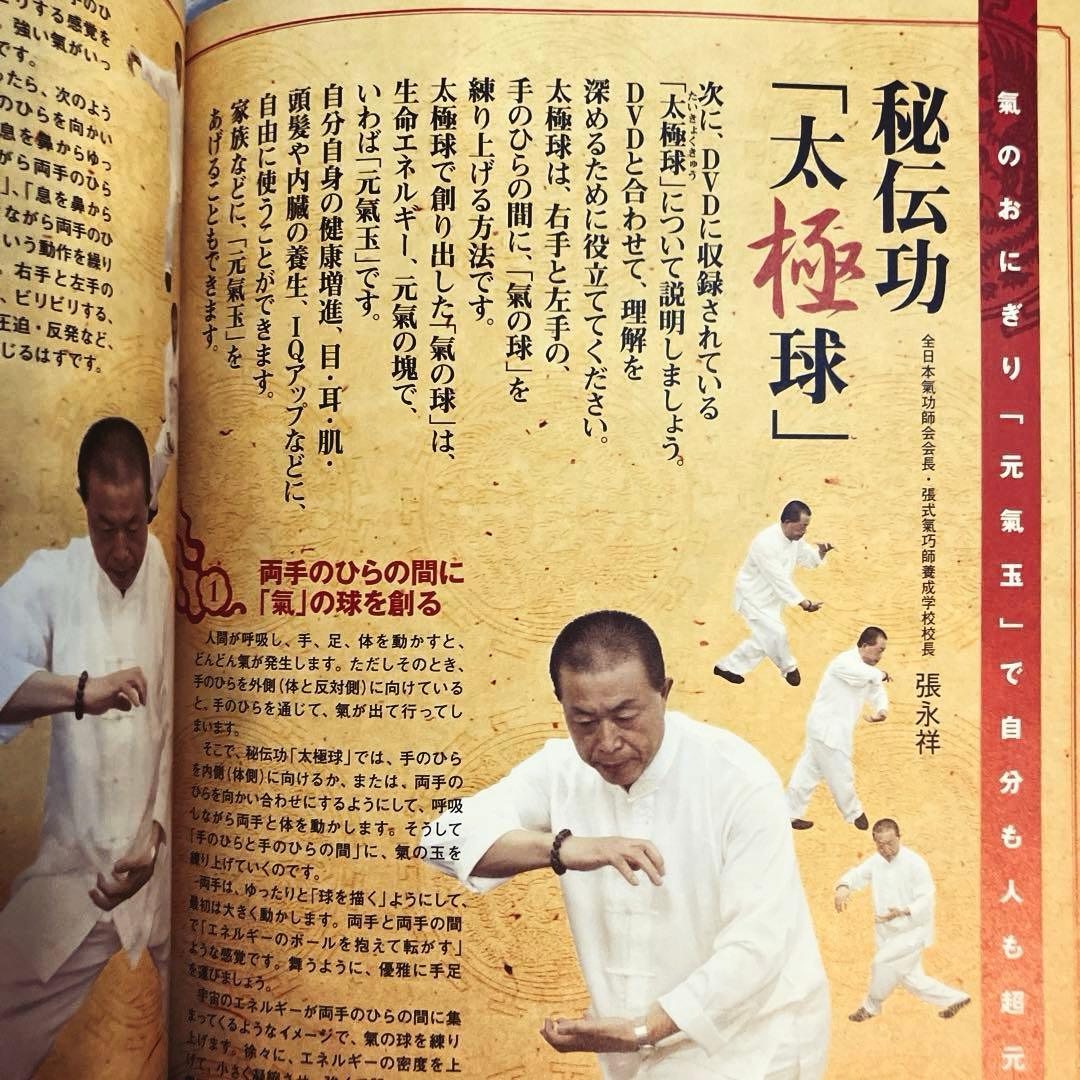 氣のおにぎり「元氣玉」で自分も人も超元
秘伝功
「太極球」
全日本氣功師会会長・張式氣巧師養成学校校長 張永祥
次に、DVDに収録されている
「太極球」について説明しましょう。
たいきょくきゅう
DVDと合わせて、理解を
深めるために役立ててください。
太極球は、右手と左手の、
手のひらの間に、「氣の球」を
練り上げる方法です。
太極球で創り出した「氣の球」は、
生命エネルギー、元氣の塊で、
いわば「元氣玉」です。
自分自身の健康増進、目・耳・肌・
頭髪や内臓の養生、IQアップなどに、
自由に使うことができます。
家族などに、「元氣玉」を
あげることもできます。
1
両手のひらの間に
「氣」の球を創る
人間が呼吸し、手、足、体を動かすと、
どんどん氣が発生します。ただしそのとき、
手のひらを外側(体と反対側)に向けている
と、手のひらを通じて、氣が出て行ってし
まいます。
そこで、秘伝功「太極球」では、手のひら
を内側(体側)に向けるか、または、両手の
ひらを向かい合わせにするようにして、呼吸
しながら両手と体を動かします。そうして
「手のひらと手のひらの間」に、氣の玉を
練り上げていくのです。
両手は、ゆったりと「球を描く」ようにして、
最初は大きく動かします。両手と両手の間
で「エネルギーのボールを抱えて転がす」
ような感覚です。舞うように、優雅に手足
を運びましょう。
宇宙のエネルギーが両手のひらの間に集
まってくるようなイメージで、氣の球を練り
上げます。徐々に、エネルギーの密度を上
げて、小さく凝縮させ、
りする感覚を
。強い氣がいっ
です。
ったら、次のよう
のひらを向かい
息を鼻からゆっ
がら両手のひら
」、「息を鼻から
ながら両手のひ
いう動作を繰り
。右手と左手の
、ビリビリする、
圧迫・反発など、
じるはずです。